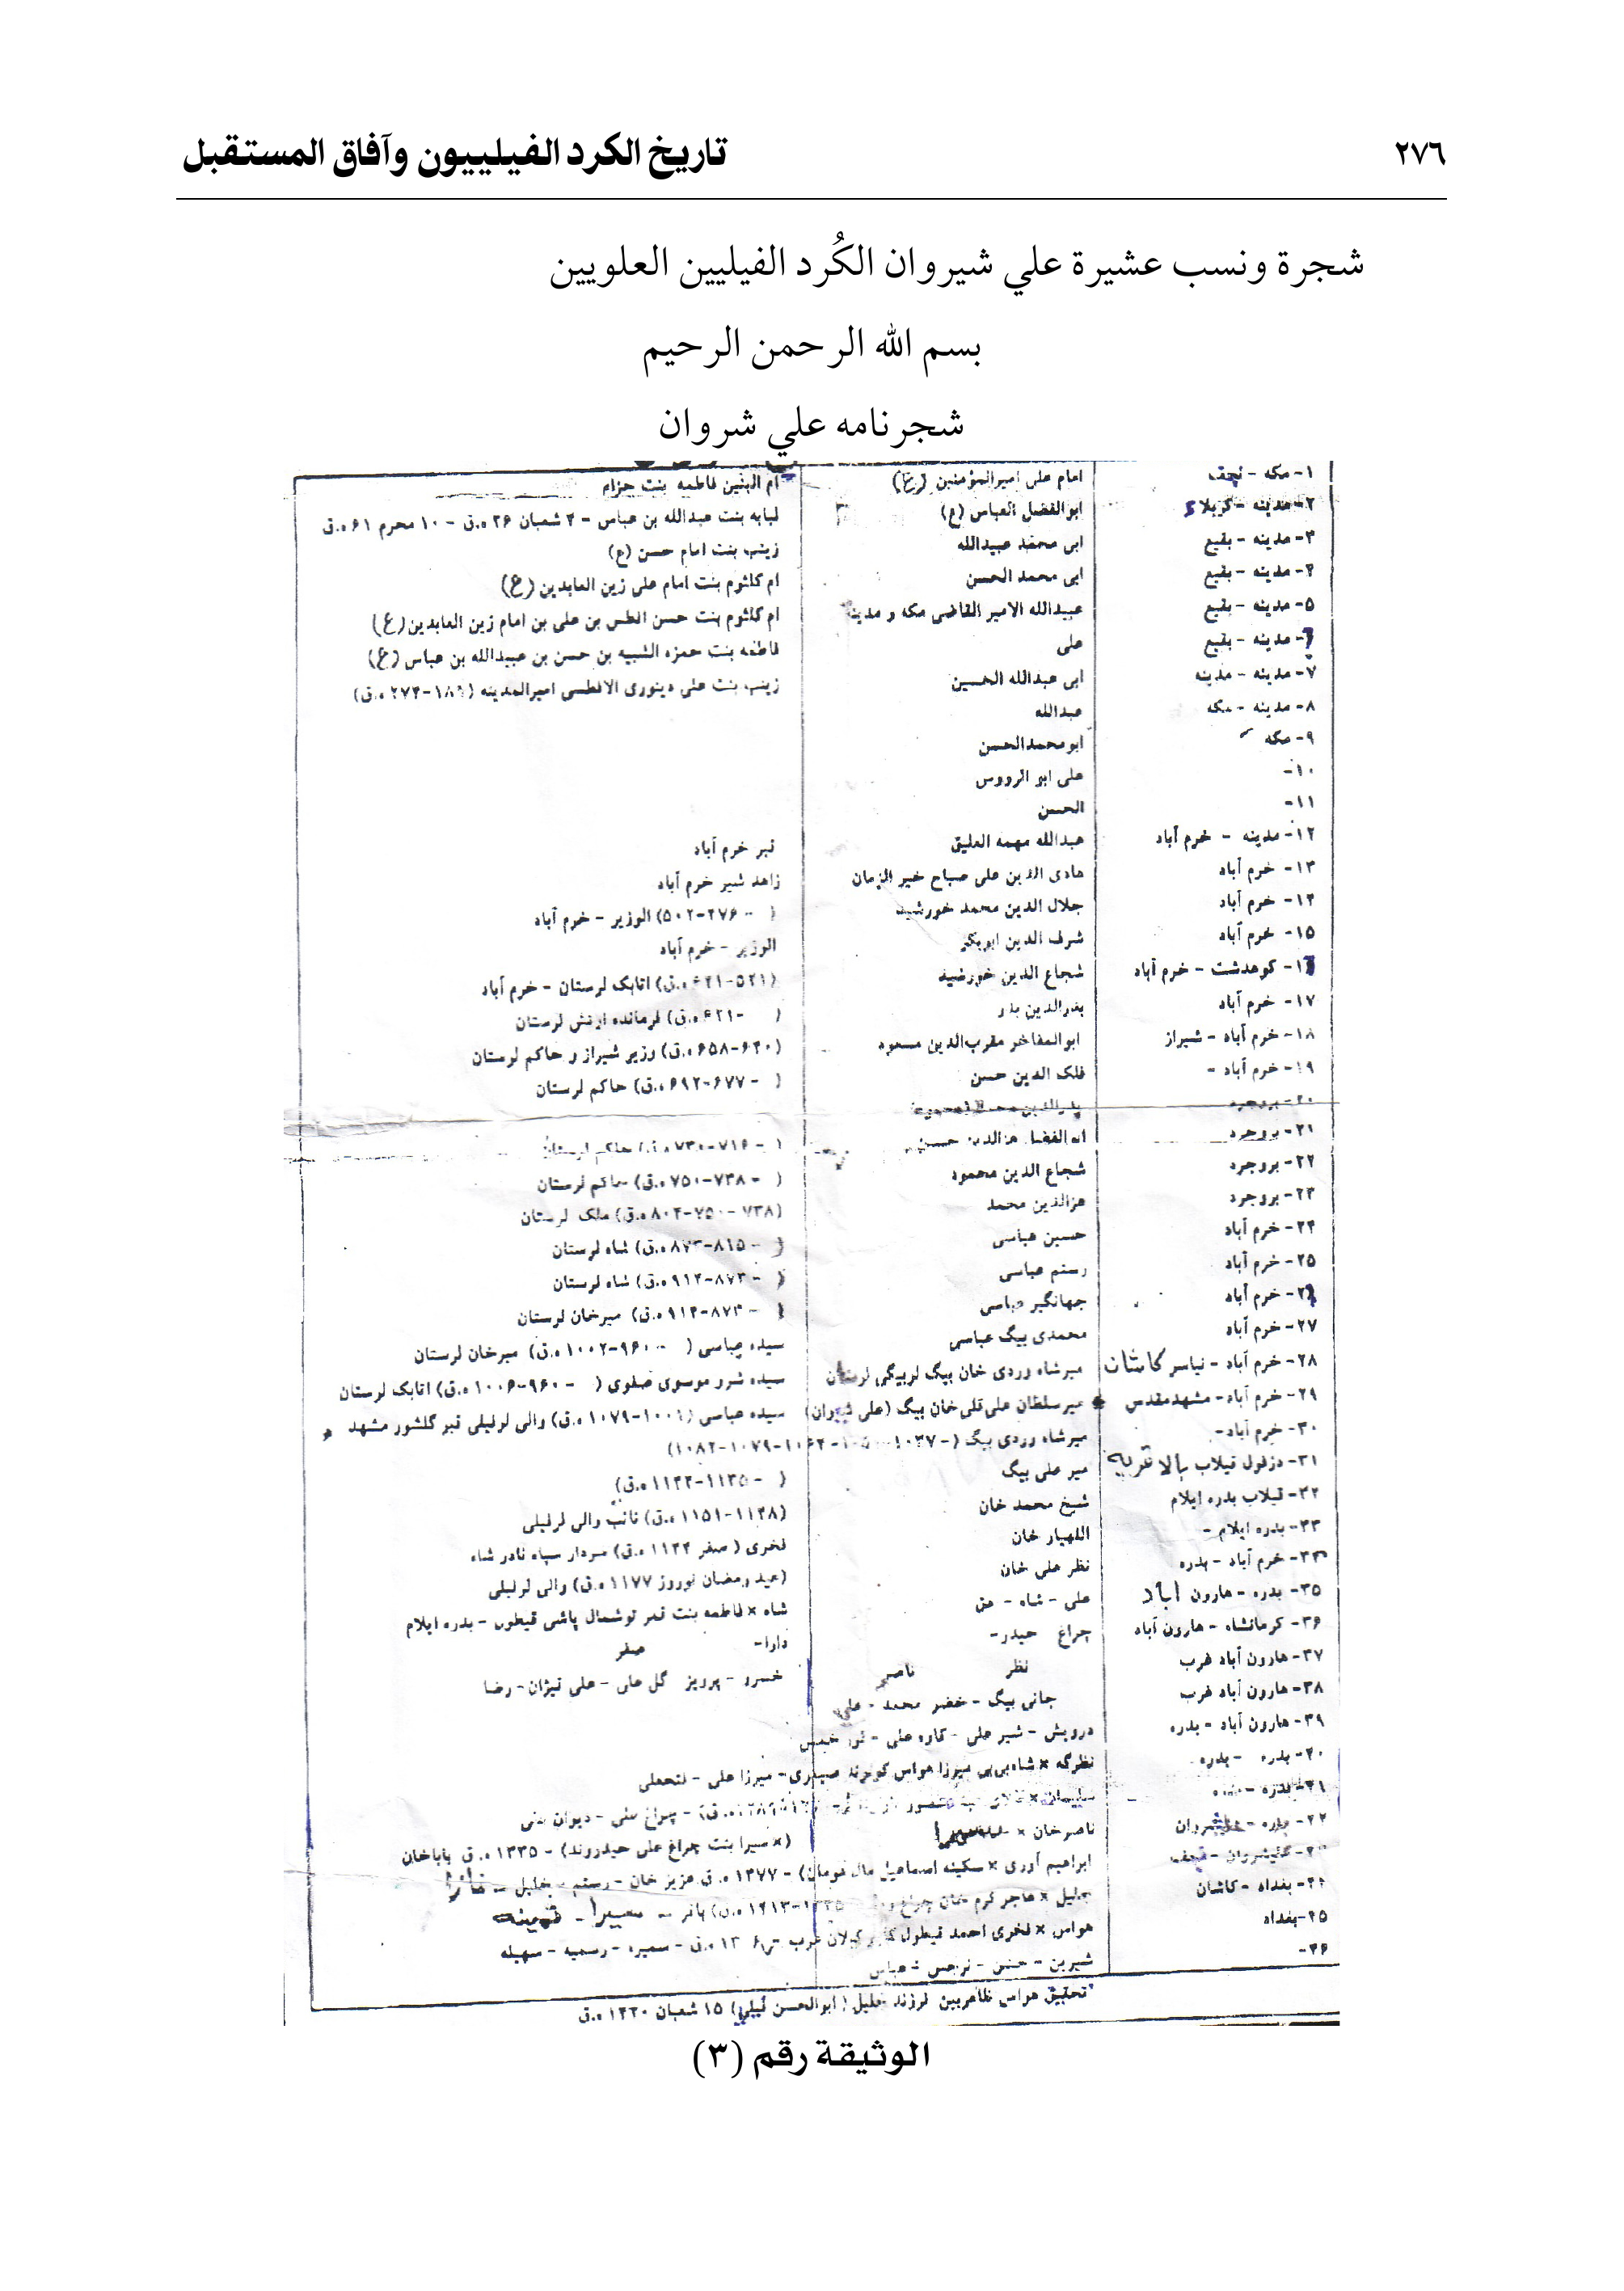 ٢٧٦
تاريخ الكرد الفيليييون وآفاق المستقبل
شجرة ونسب عشيرة علي شيروان الكُرد الفيليين العلويين
بسم الله الرحمن الرحيم
شجرنامه علي شروان
۱- مکه - نجف امام علی امیرالمؤمنین (ع) ام البنین فاطمه بنت حزام
۲- مدینه - کربلا ابوالفضل العباس (ع) لبابه بنت عبدالله بن عباس - ۴ شعبان ۲۶ ه.ق - ۱۰ محرم ۶۱ ه.ق
۳- مدینه - بقیع ابی محمد عبیدالله زینب بنت امام حسن (ع)
۴- مدینه - بقیع ابی محمد الحسن ام کلثوم بنت امام علی زین العابدین (ع)
۵- مدینه - بقیع عبیدالله الامیر القاضی مکه و مدینه ام کلثوم بنت حسن الطس بن علی بن امام زین العابدین (ع)
۶- مدینه - بقیع علی فاطمه بنت حمزه الشبیه بن حسن بن عبیدالله بن عباس (ع)
۷- مدینه - مدینه ابی عبدالله الحسین زینب بنت علی دینوری الافطسی امیرالمدینه
۸- مدینه - مکه عبدالله
۹- مکه ابومحمدالحسن
۱۰- علی ابو الرووس
۱۱- الحسن
۱۲- مدینه - خرم آباد عبدالله مهمه العلیق قبر خرم آباد
۱۳- خرم آباد هادی الدین علی صباح خیر الزمان زاهد شیر خرم آباد
۱۴- خرم آباد جلال الدین محمد خورشید ( - ۴۷۶-۵۰۲) الوزیر - خرم آباد
۱۵- خرم آباد شرف الدین ابوبکر الوزیر - خرم آباد
۱۶- کوهدشت - خرم آباد شجاع الدین خورشید (۵۲۱-۶۲۱ ه.ق) اتابک لرستان - خرم آباد
۱۷- خرم آباد بدرالدین بدر ( -۶۲۱ ه.ق) فرمانده ارتش لرستان
۱۸- خرم آباد - شیراز ابوالمفاخر مقرب‌الدین مسعود (۶۴۰-۶۵۸ ه.ق) وزیر شیراز و حاکم لرستان
۱۹- خرم آباد - فلک الدین حسن ( - ۶۷۷-۶۹۲ ه.ق) حاکم لرستان
۲۰- بروجرد
۲۱- بروجرد ابوالفضل عزالدین حسین ( - ۷۱۶-۷۳۰ ه.ق) حاکم لرستان
۲۲- بروجرد شجاع الدین محمود ( - ۷۳۸-۷۵۰ ه.ق) حاکم لرستان
۲۳- بروجرد عزالدین محمد (۷۳۸ -۷۵۰-۸۰۴ ه.ق) ملک لرستان
۲۴- خرم آباد حسین عباسی ( - ۸۱۵-۸۷۳ ه.ق) شاه لرستان
۲۵- خرم آباد رستم عباسی ( - ۸۷۳-۹۱۴ ه.ق) شاه لرستان
۲۶- خرم آباد جهانگیر عباسی ( - ۸۷۳-۹۱۴ ه.ق) میرخان لرستان
۲۷- خرم آباد محمدی بیگ عباسی سیده عباسی ( - ۹۶۰-۱۰۰۲ ه.ق) میرخان لرستان
۲۸- خرم آباد - نیاسر کاشان میرشاه وردی خان بیگ لربیگی لرستان سیده شرو موسوی صفوی ( - ۹۶۰-۱۰۰۶ ه.ق) اتابک لرستان
۲۹- خرم آباد - مشهدمقدس میرسلطان علی‌قلی‌خان بیگ سیده عباسی (۱۰۰۱-۱۰۷۹ ه.ق) والی لرفیلی قبر گلشور مشهد
۳۰- خرم آباد- میرشاه وردی بیگ
۳۱- دزفول قیلاب بالا قریه میر علی بیگ ( - ۱۱۳۵-۱۱۴۴ ه.ق)
۳۲- قیلاب بدره ایلام شیخ محمد خان (۱۱۴۸-۱۱۵۱ ه.ق) نائب والی لرفیلی
۳۳- بدره ایلام - اللهیار خان فخری ( صفر ۱۱۴۴ ه.ق) سردار سپاه نادر شاه
۳۴- خرم آباد - بدره نظر علی خان (عید رمضان نوروز ۱۱۷۷ ه.ق) والی لرفیلی
۳۵- بدره - هارون آباد علی - شاه - حق شاه × فاطمه بنت قمر توشمال پاشی قیطول - بدره ایلام
۳۶- کرمانشاه - هارون آباد چراغ حیدر- دارا- صفر
۳۷- هارون آباد غرب نظر ناصر خسرو - پرویز گل علی - علی - رضا
۳۸- هارون آباد غرب جانی بیگ - خضر محمد - علی
۳۹- هارون آباد - بدره درویش - شیر علی - کاوه علی
۴۰- بدره - بدره نظرگه × شاه‌بی‌بی میرزا هواس - میرزا علی - فتحعلی
۴۱- بدره سلیمان × - چراغ علی - دیوان علی
۴۲- بدره - علیشروان ناصرخان × (× سیرا بنت چراغ علی حیدروند) - ۱۳۳۵ ه.ق باباخان
۴۳- ابراهیم آوری × سکینه اسماعیل مال - ۱۳۷۷ ه.ق عزیز خان - رستم - خلیل
۴۴- بغداد - کاشان خلیل × هاجر کرم خان
۴۵- بغداد هواس × فخری احمد قیطول - سمیره - رسمیه - سهیله
۴۶- شیرین - حسن - نرجس - عباس
تحقیق هواس ظاهربین فرزند خلیل (ابوالحسن فیلی) ۱۵ شعبان ۱۴۲۰ ه.ق
الوثيقة رقم (٣)